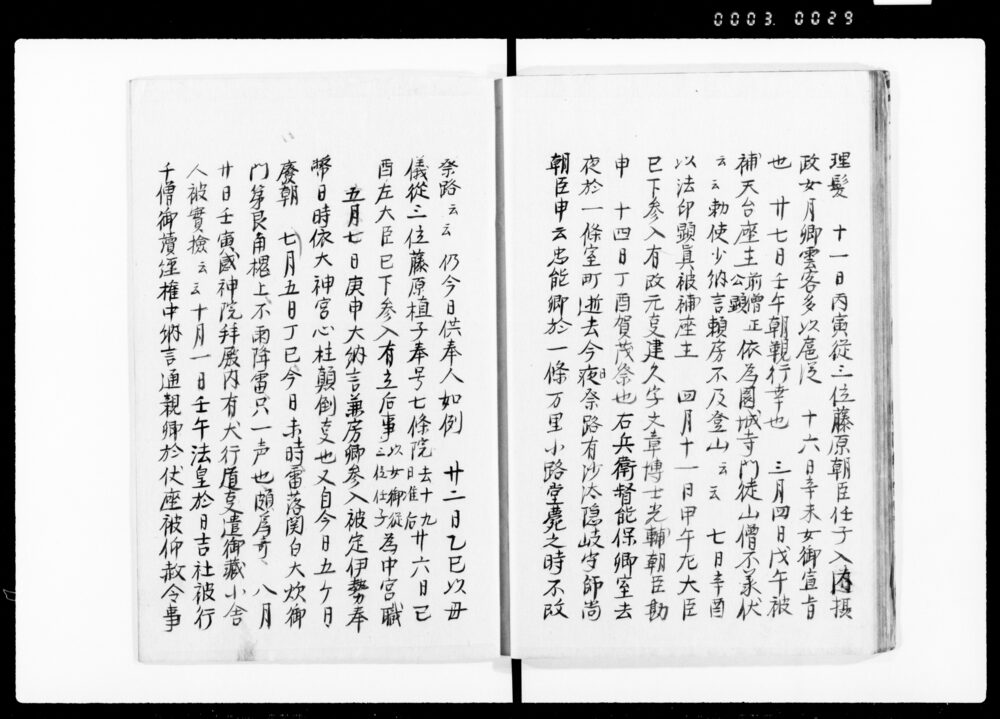 0003.0029
理髪　十一日丙寅従三位藤原朝臣任子入内摂
政女月卿雲客多以扈従　十六日辛未女御宣旨
也　廿七日壬午朝覲行幸也　三月四日戊午被
補天台座主前僧正公顕依為園城寺門徒山僧不羕伏
云云勅使少納言頼房不及登山云云　七日辛酉
以法印顕真被補座主　四月十一日甲午左大臣
已下参入有改元㕝建久字文章博士光輔朝臣勘
申　十四日丁酉賀茂祭也右兵衛督能保卿室去
夜於一條室町逝去今夜祭路有沙汰隠岐守師尚
朝臣申云忠能卿於一條万里小路堂薨之時不改
祭路云云　仍今日供奉人如例　廿二日乙巳以母
儀従三位藤原植子奉号七條院去十九日准后廿六日己
酉左大臣已下参入有立后事以女御従三位任子為中宮職
五月七日庚申大納言兼房卿参入被定伊勢奉
幣日時依大神宮心柱顛倒㕝也又自今日五ケ日
廃朝　七月五日丁巳今日未時雷落関白大炊御
門第艮角榲上不雨降雷只一声也頗為奇　八月
廿日壬寅感神院拝殿内有犬行遁㕝遣御蔵小舎
人被實撿云云十月一日壬午法皇於日吉社被行
千僧御讀経権中納言通親卿於伏座被仰赦令事